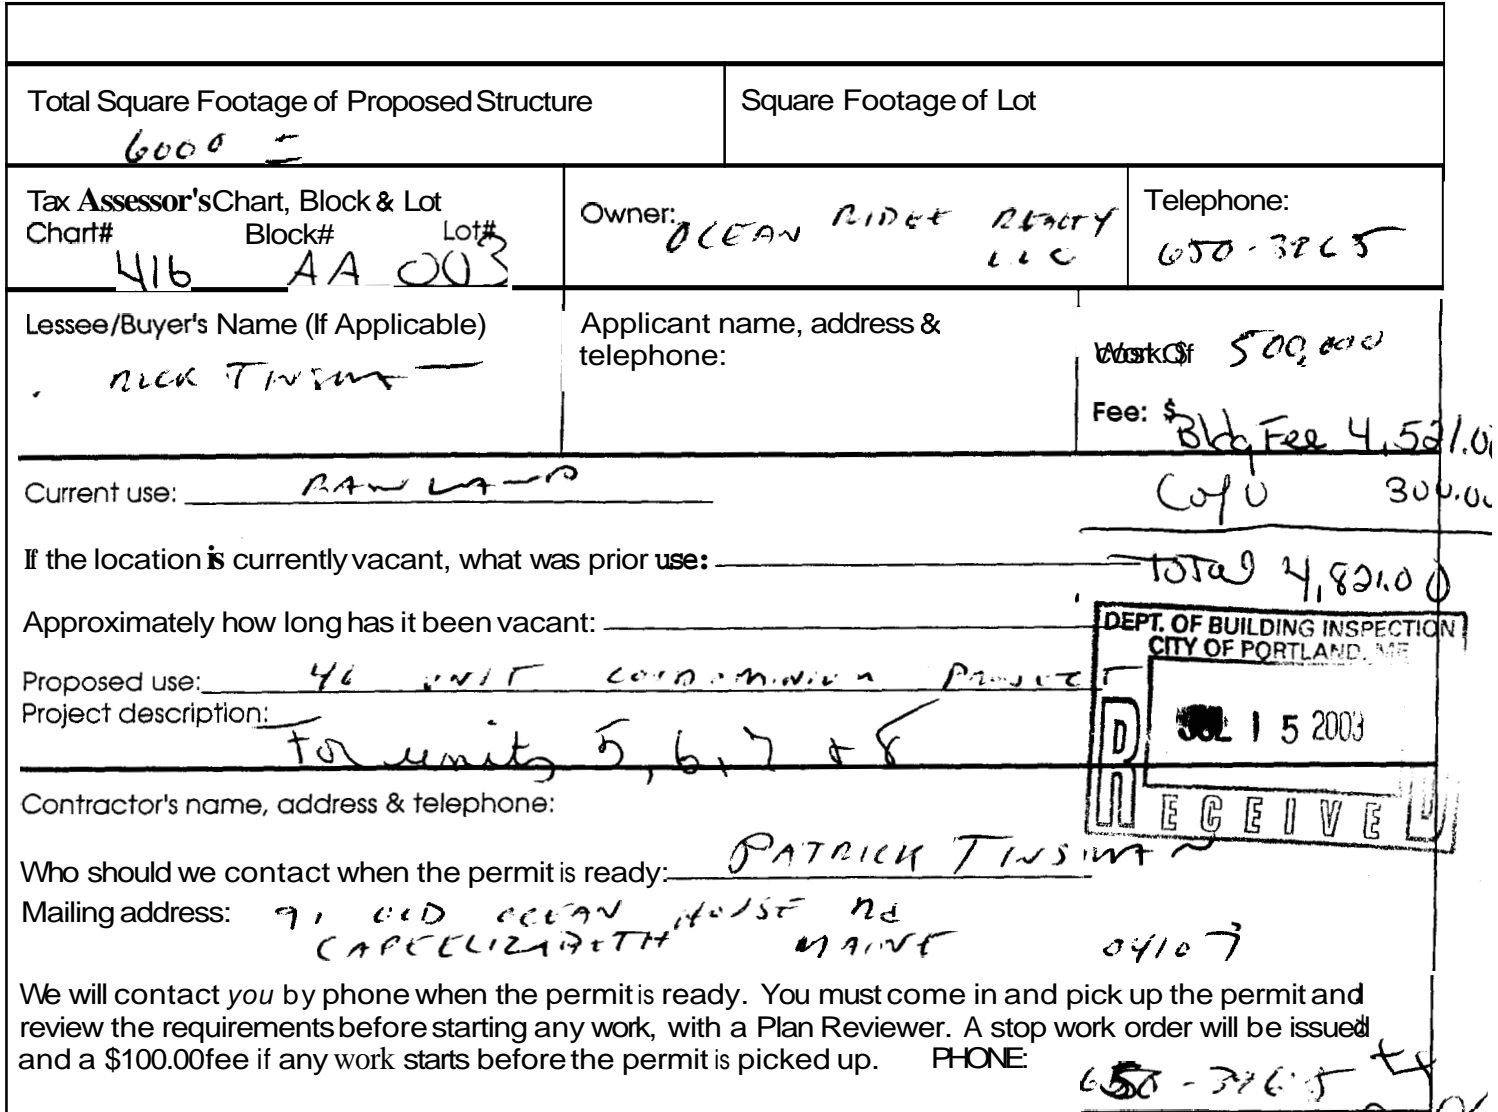 Total Square Footage of Proposed Structure
6000 ±
Square Footage of Lot
Tax Assessor's Chart, Block & Lot
Chart# Block# Lot#
416 AA 003
Owner: OCEAN RIDGE REALTY
LLC
Telephone:
650-3965
Lessee/Buyer's Name (If Applicable)
RICK
Applicant name, address &
telephone:
Cost Of
Work: $ 500,000
Fee: $
Bldg Fee 4,521.00
CofO 300.00
Total 4,821.00
Current use: RAW LAND
If the location is currently vacant, what was prior use:
Approximately how long has it been vacant:
Proposed use: UNIT CONDOMINIUM PROJECT
Project description:
For units 5, 6, 7 + 8
DEPT. OF BUILDING INSPECTION
CITY OF PORTLAND, ME
JUL 15 2003
RECEIVED
Contractor's name, address & telephone:
Who should we contact when the permit is ready: PATRICK TINSMAN
Mailing address: 91 OLD OCEAN HOUSE Rd
CAPE ELIZABETH MAINE 04107
We will contact you by phone when the permit is ready. You must come in and pick up the permit and
review the requirements before starting any work, with a Plan Reviewer. A stop work order will be issued
and a $100.00 fee if any work starts before the permit is picked up. PHONE:
650-3965